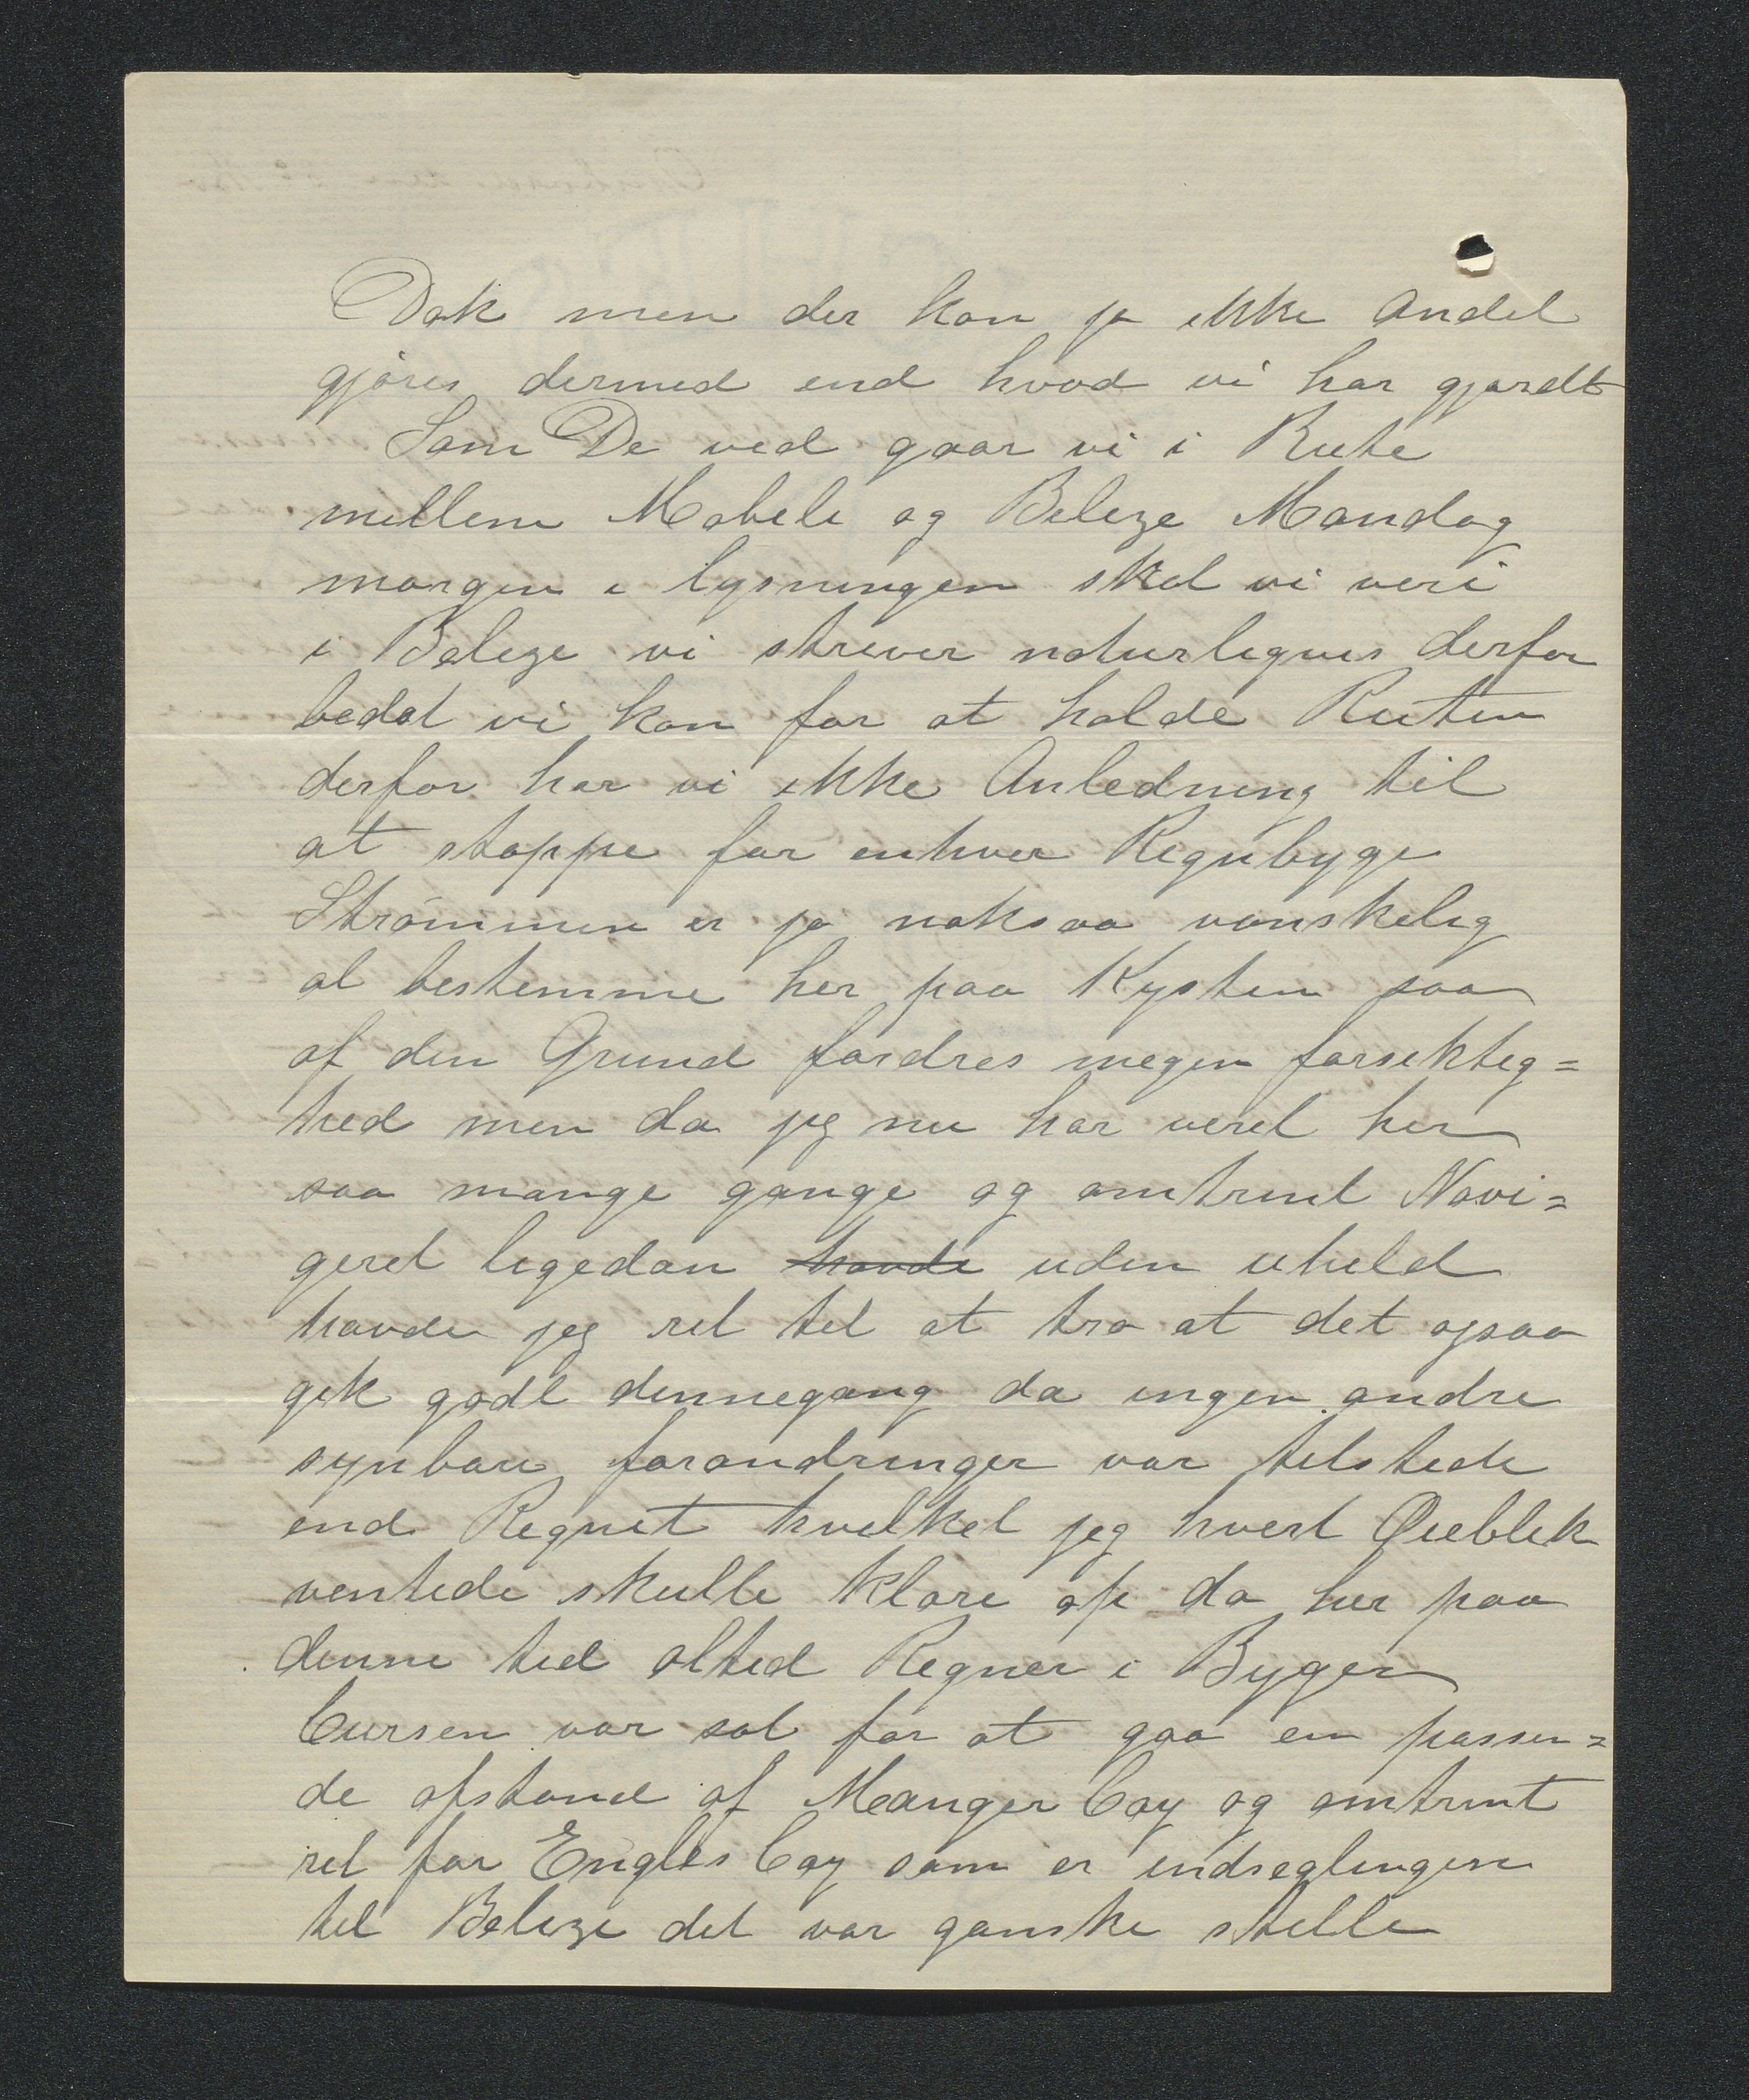 Dok men der kan ja ikke Andet
gjøres dermed end hvad vi har gjordt
Som De ved gaar vi i Rute
mellem Mobele og Belize Mandag
morgen i lysningen skal vi veri
i Belize vi strever naturligvis derfor
bedst vi kan for at holde Ruten
derfor har vi ikke Anledning til
at stoppe for enhver Regnbyge
Strømmen er ja noksaa vanskelig
at bestemme her paa Kysten saa
af den Grund fordres megen forsiktig=
hed men da jeg nu har veret her
saa mange gange og omtrent Navi=
geret ligedan havde uden uheld
havde jeg ret til at tro at det ogsaa
gik godt dennegang da ingen andre
synbare forandringer var tilstede
end Regnet hvilket jeg hvert Øieblik
ventede skulle klare op da her paa
denne tid altid Regner i Byger
Cursen var sat for at gaa en passen=
de afstand af Mauger Cay og omtrent
ret for Engles Cay som er indseglingen
til Belize det var ganske stille